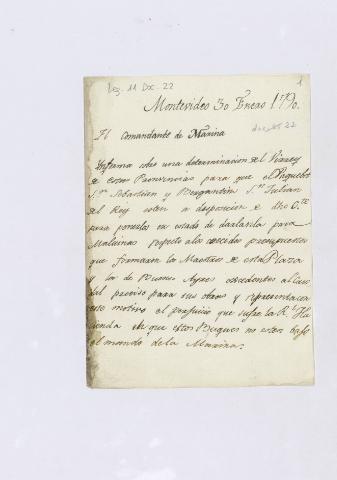 Leg. 11 Doc. 22
1
Montevideo 30 Enero 1790.
El Comandante de Marina
docto 22
Informa sobre una determinacion del Virrey
de estas Provincias para que el Paquebot
Sn. Sebastian y Bergantin Sn. Julian
del Rey esten a disposicion de dho Gte
para ponerlos en estado de darlavela para
Malvinas respecto a los presupuestos
que formaron la Maestria de esta Plaza
y la de Buenos Ayres al Cau
dal preciso para sus obras y representa con
este motivo el perjuicio que sufre la Rl. Ha
cienda de que estos Buques no esten bajo
el mando de la Marina.